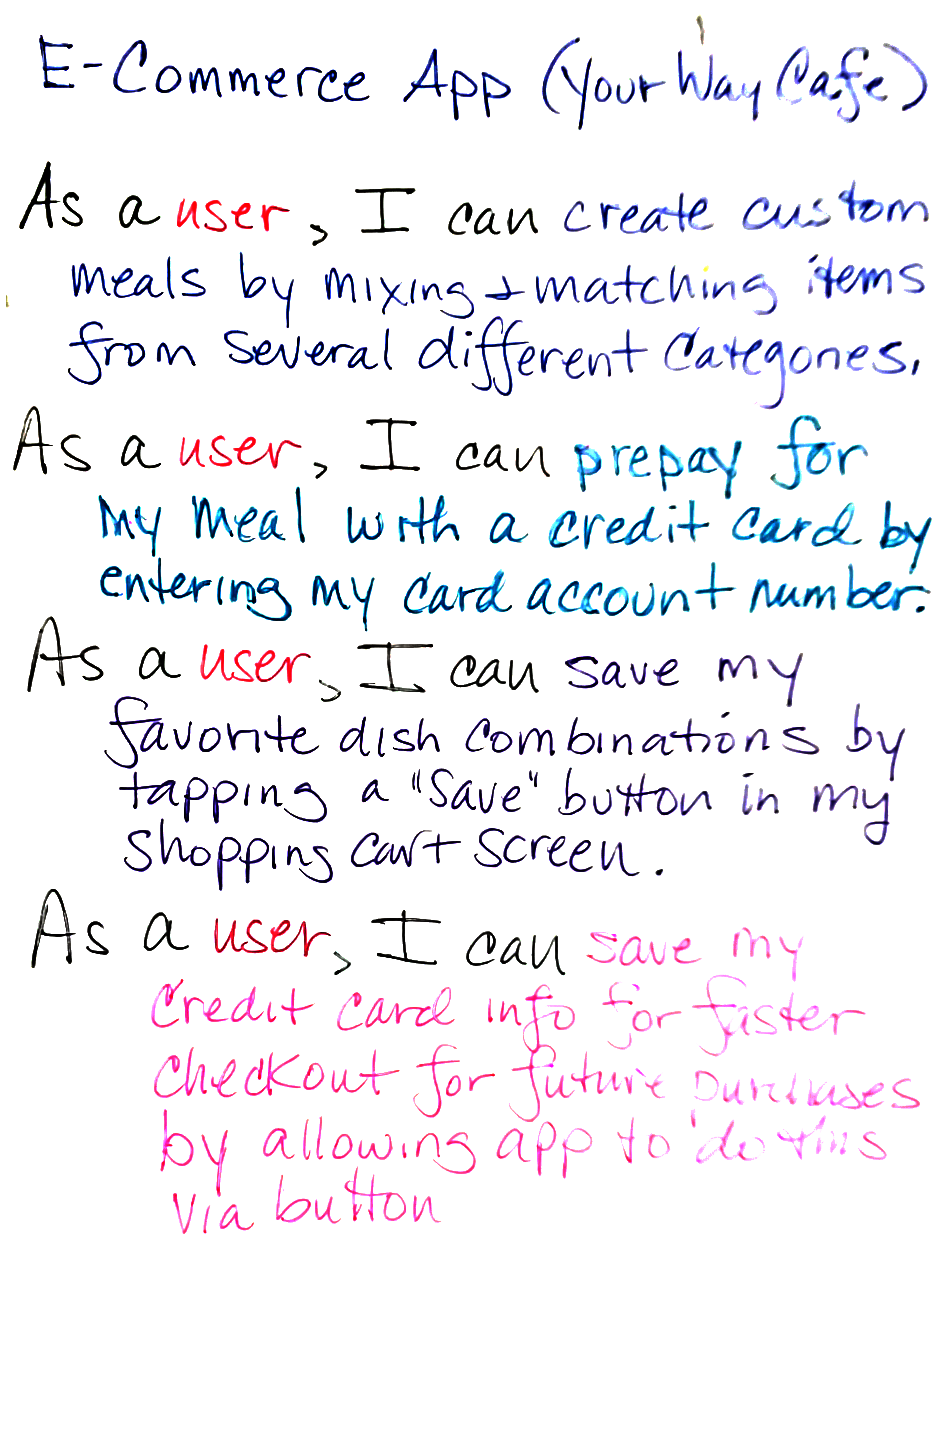 E-Commerce App (Your Way Cafe)
As a user, I can create custom
meals by mixing + matching items
from several different categories.
As a user, I can prepay for
my meal with a credit card by
entering my card account number.
As a user, I can save my
favorite dish combinations by
tapping a "Save" button in my
shopping cart screen.
As a user, I can save my
credit card info for faster
checkout for future purchases
by allowing app to do this
via button